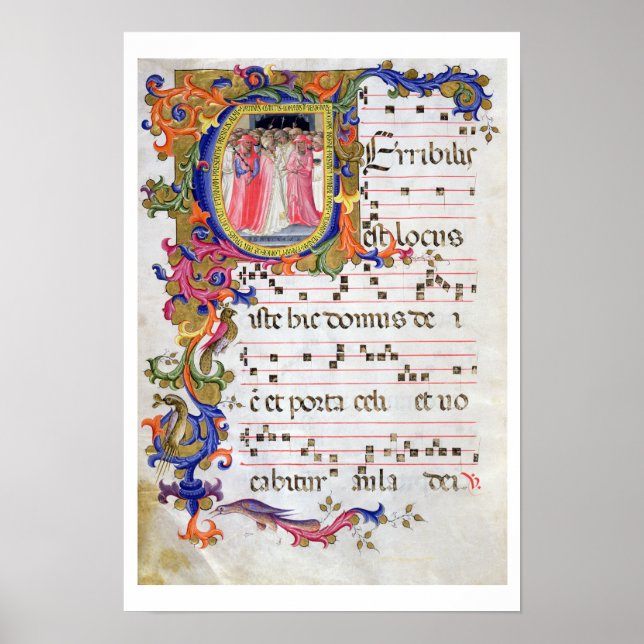 Erribilis
est locus
iste hic domus de i
ē et porta celi et uo
cabitur aula dei ℣.